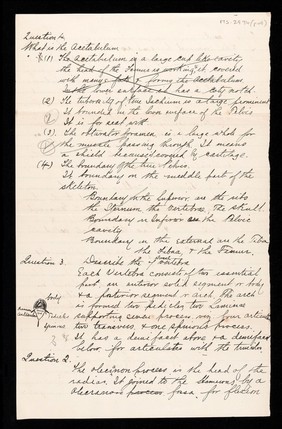 Question 4
What is the Acetabulum
(1) The Acetabulum is a large cup like cavity
the head of the Femur is working it covered
with many & forms the acetabulum
the lower surface it has a coty notch.
(2) The tuberosity of the Ischium is a large prominent
It bounded in the low surface of the Pelvis
It is for seat with
(3) The obturator foramen is a large whole for
the muscle passing through. It means
a shield heaven covered by cartilage.
(4) The boundary of the
It boundary on the middle part of the
skeleton.
Boundary in the Superior are the ribs
the Sternum the vertebra the skull.
Boundary is Inferior are the Pelvic
cavity
Boundary on the external are the Tibia
the Fibia, & the Femur.
Question 3. Describe the Vertebra
Each Vertebra consists of two essential
part, an anterior solid segment or body
& a posterior segment or arch the arch
is formed two pedicles two Laminae
supporting seven process, viz four articular
two transvers, & one spinous process.
It has a demi facet above & a demifacet
below for articulates with the
body
spinous
Question 2.
The olecranon process is the head of the
radius. It joined to the Humerus by a
olecranon fossa, for flexion